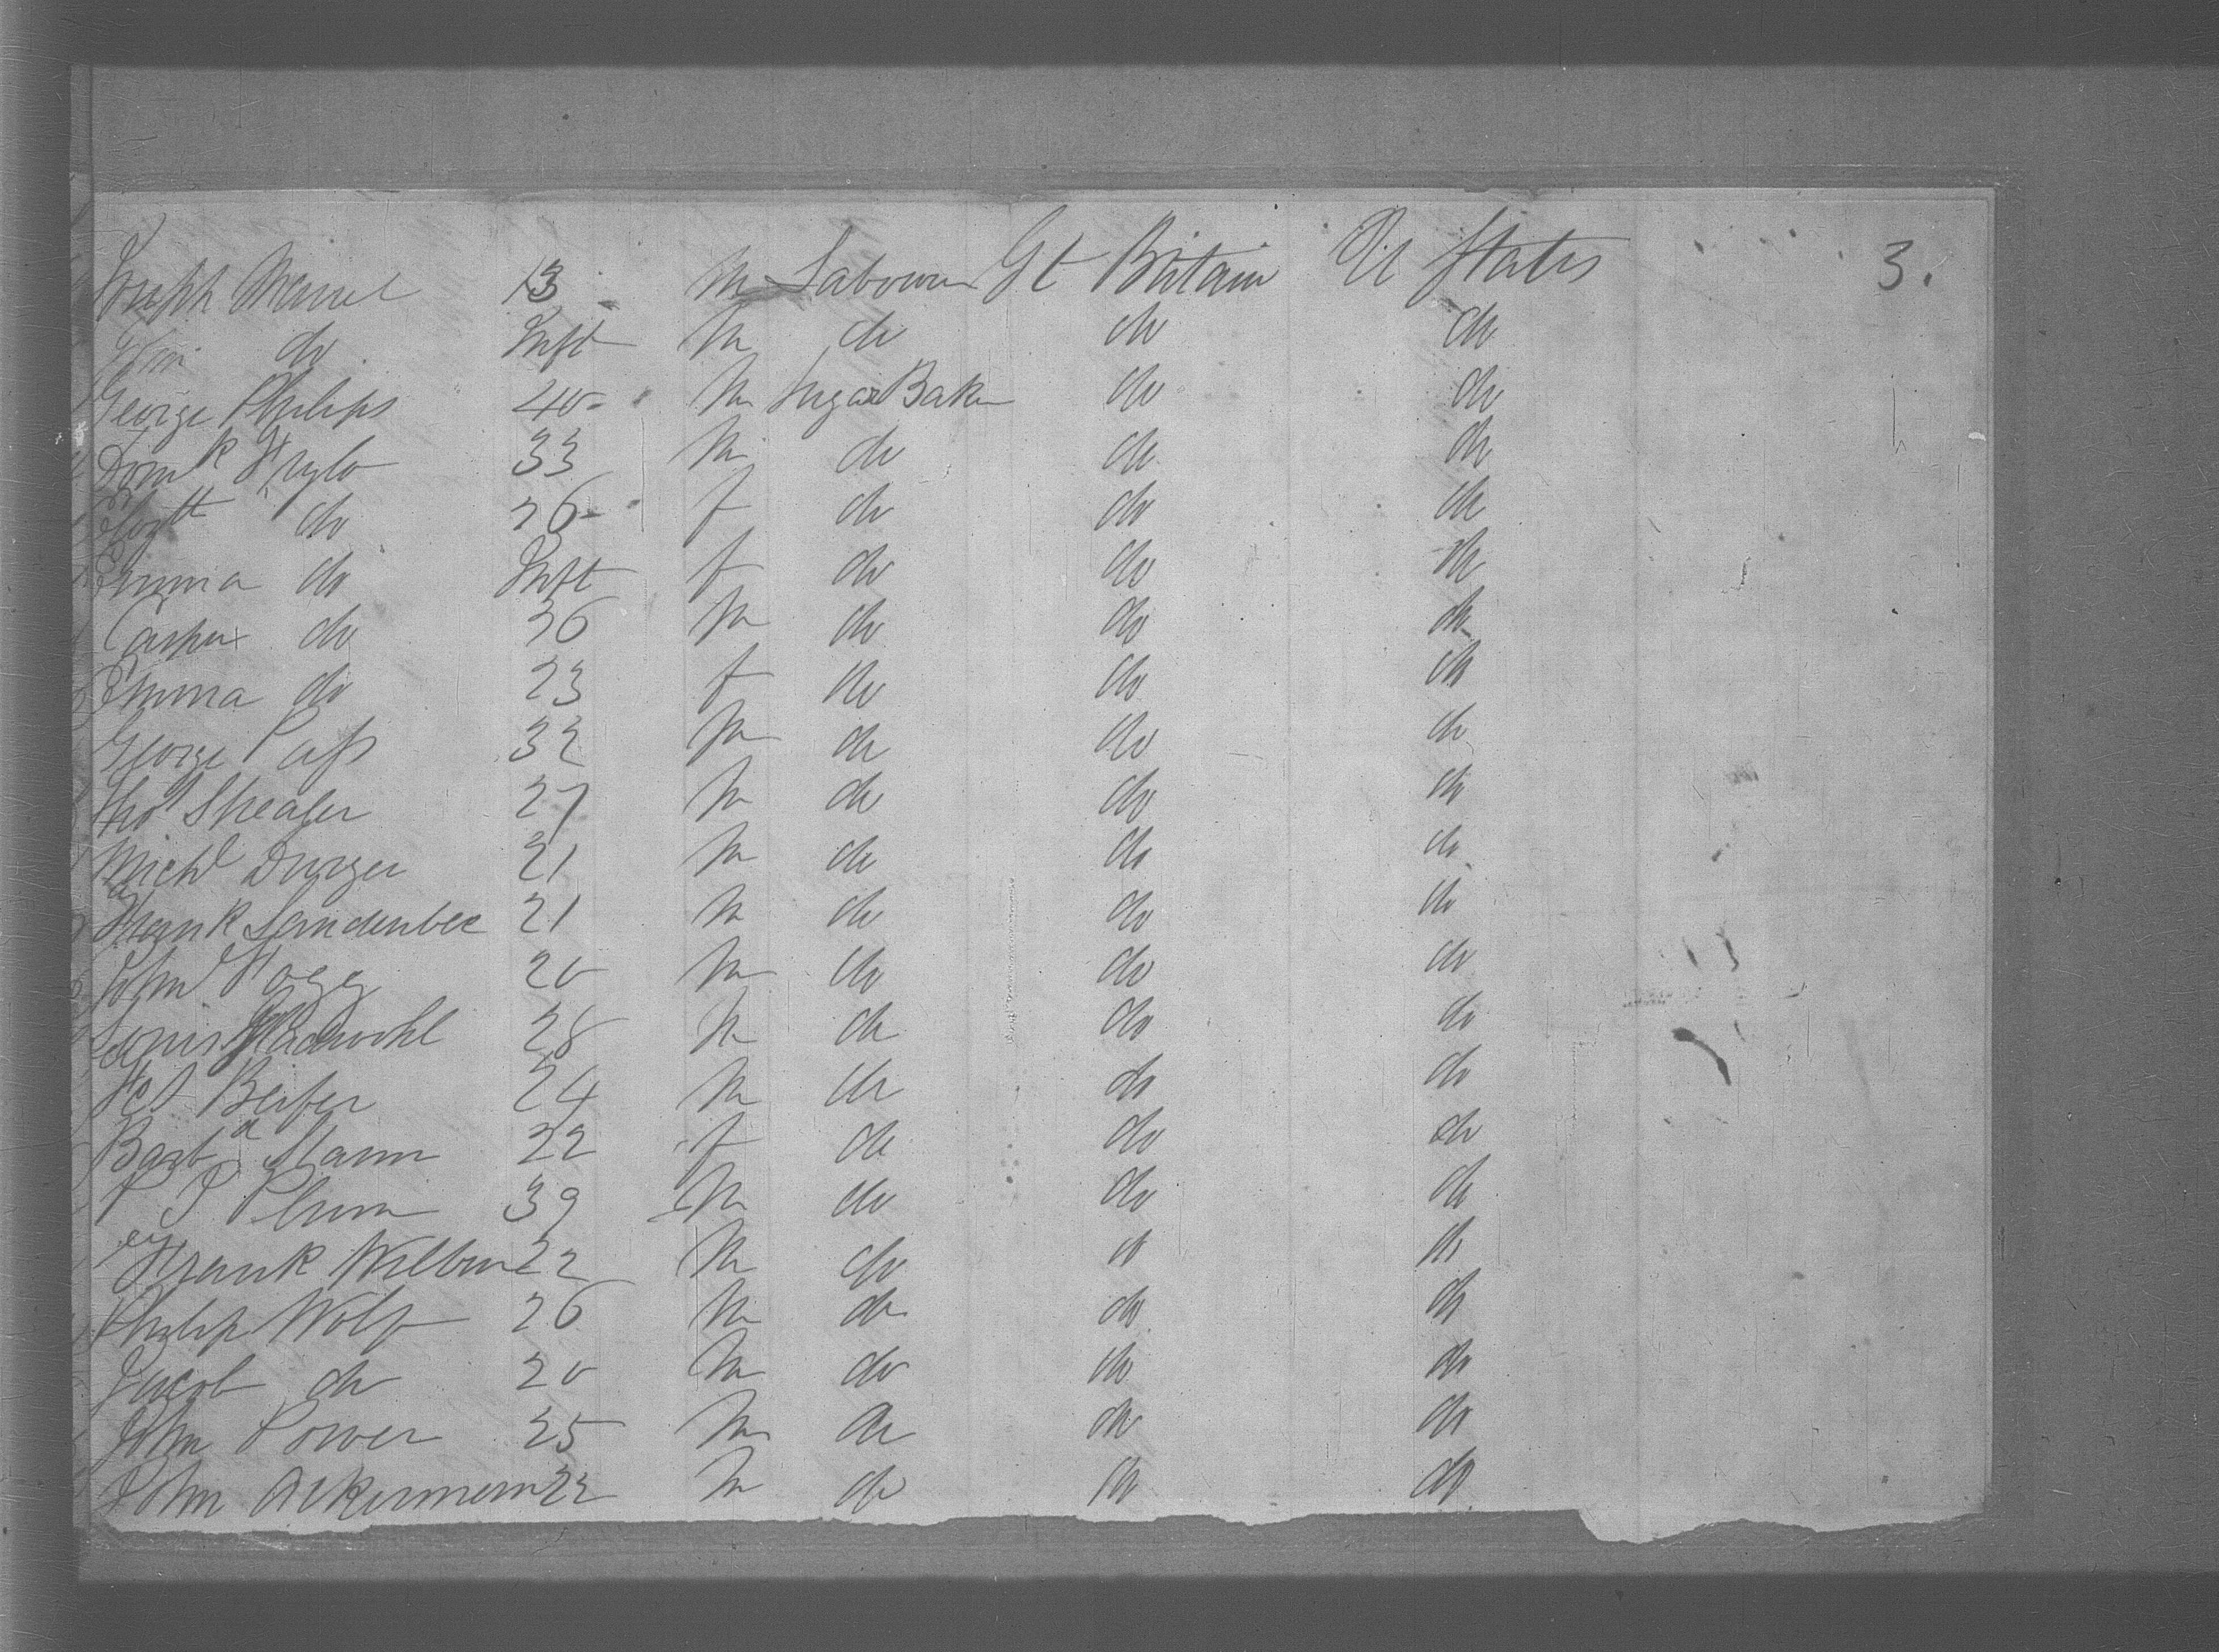 3.
Joseph Marrel 13 M Labourer Gt Britain U States
Wm do Inft M do do do
George Philips 40 M Sugar Baker do do
Domk 33 M do do do
Elizth do 26 f do do do
Emma do Inft f do do do
Casper do 36 M do do do
Emma do 23 f do do do
George Pass 32 M do do do
Thos Sheafer 27 M do do do
Michl Durger 21 M do do do
Frank 21 M do do do
John Hogg 20 M do do do
Louis 28 M do do do
Beifer 24 M do do do
Barba Mann 22 f do do do
P J Plum 39 M do do do
Frank Wilbur 22 M do do do
Philip Wolf 26 M do do do
Jacob do 20 M do do do
John Power 25 M do do do
John Ackermann 22 M do do do